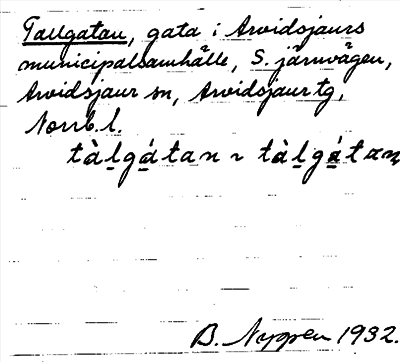 Tallgatan, gata i Arvidsjaurs
municipalsamhälle, S. järnvägen,
Arvidsjaur sn, Arvidsjaur tg,
Norrb. l.
tàl̲gá̲tan ~ tàl̲gá̲tan
B. Nygren 1932.